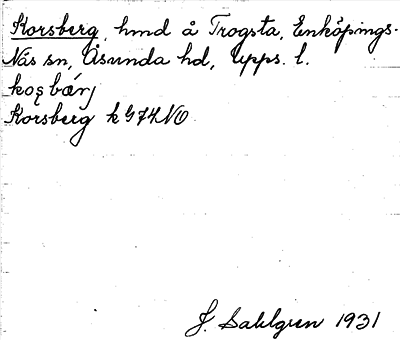 Korsberg, hmd å Trogsta, Enköpings-
Näs sn, Åsunda hd, Upps. l.
Korsberg k G 74 NO
J. Sahlgren 1931